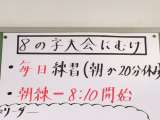 8の字大会にむけ
・毎日練習(朝か20分休
・朝練→8:10開始
リーダー